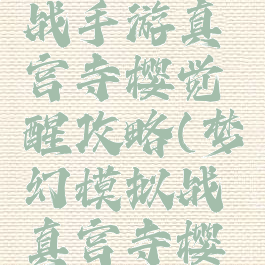 战手游真
宫寺樱觉
醒攻略(梦
幻模拟战
真宫寺樱